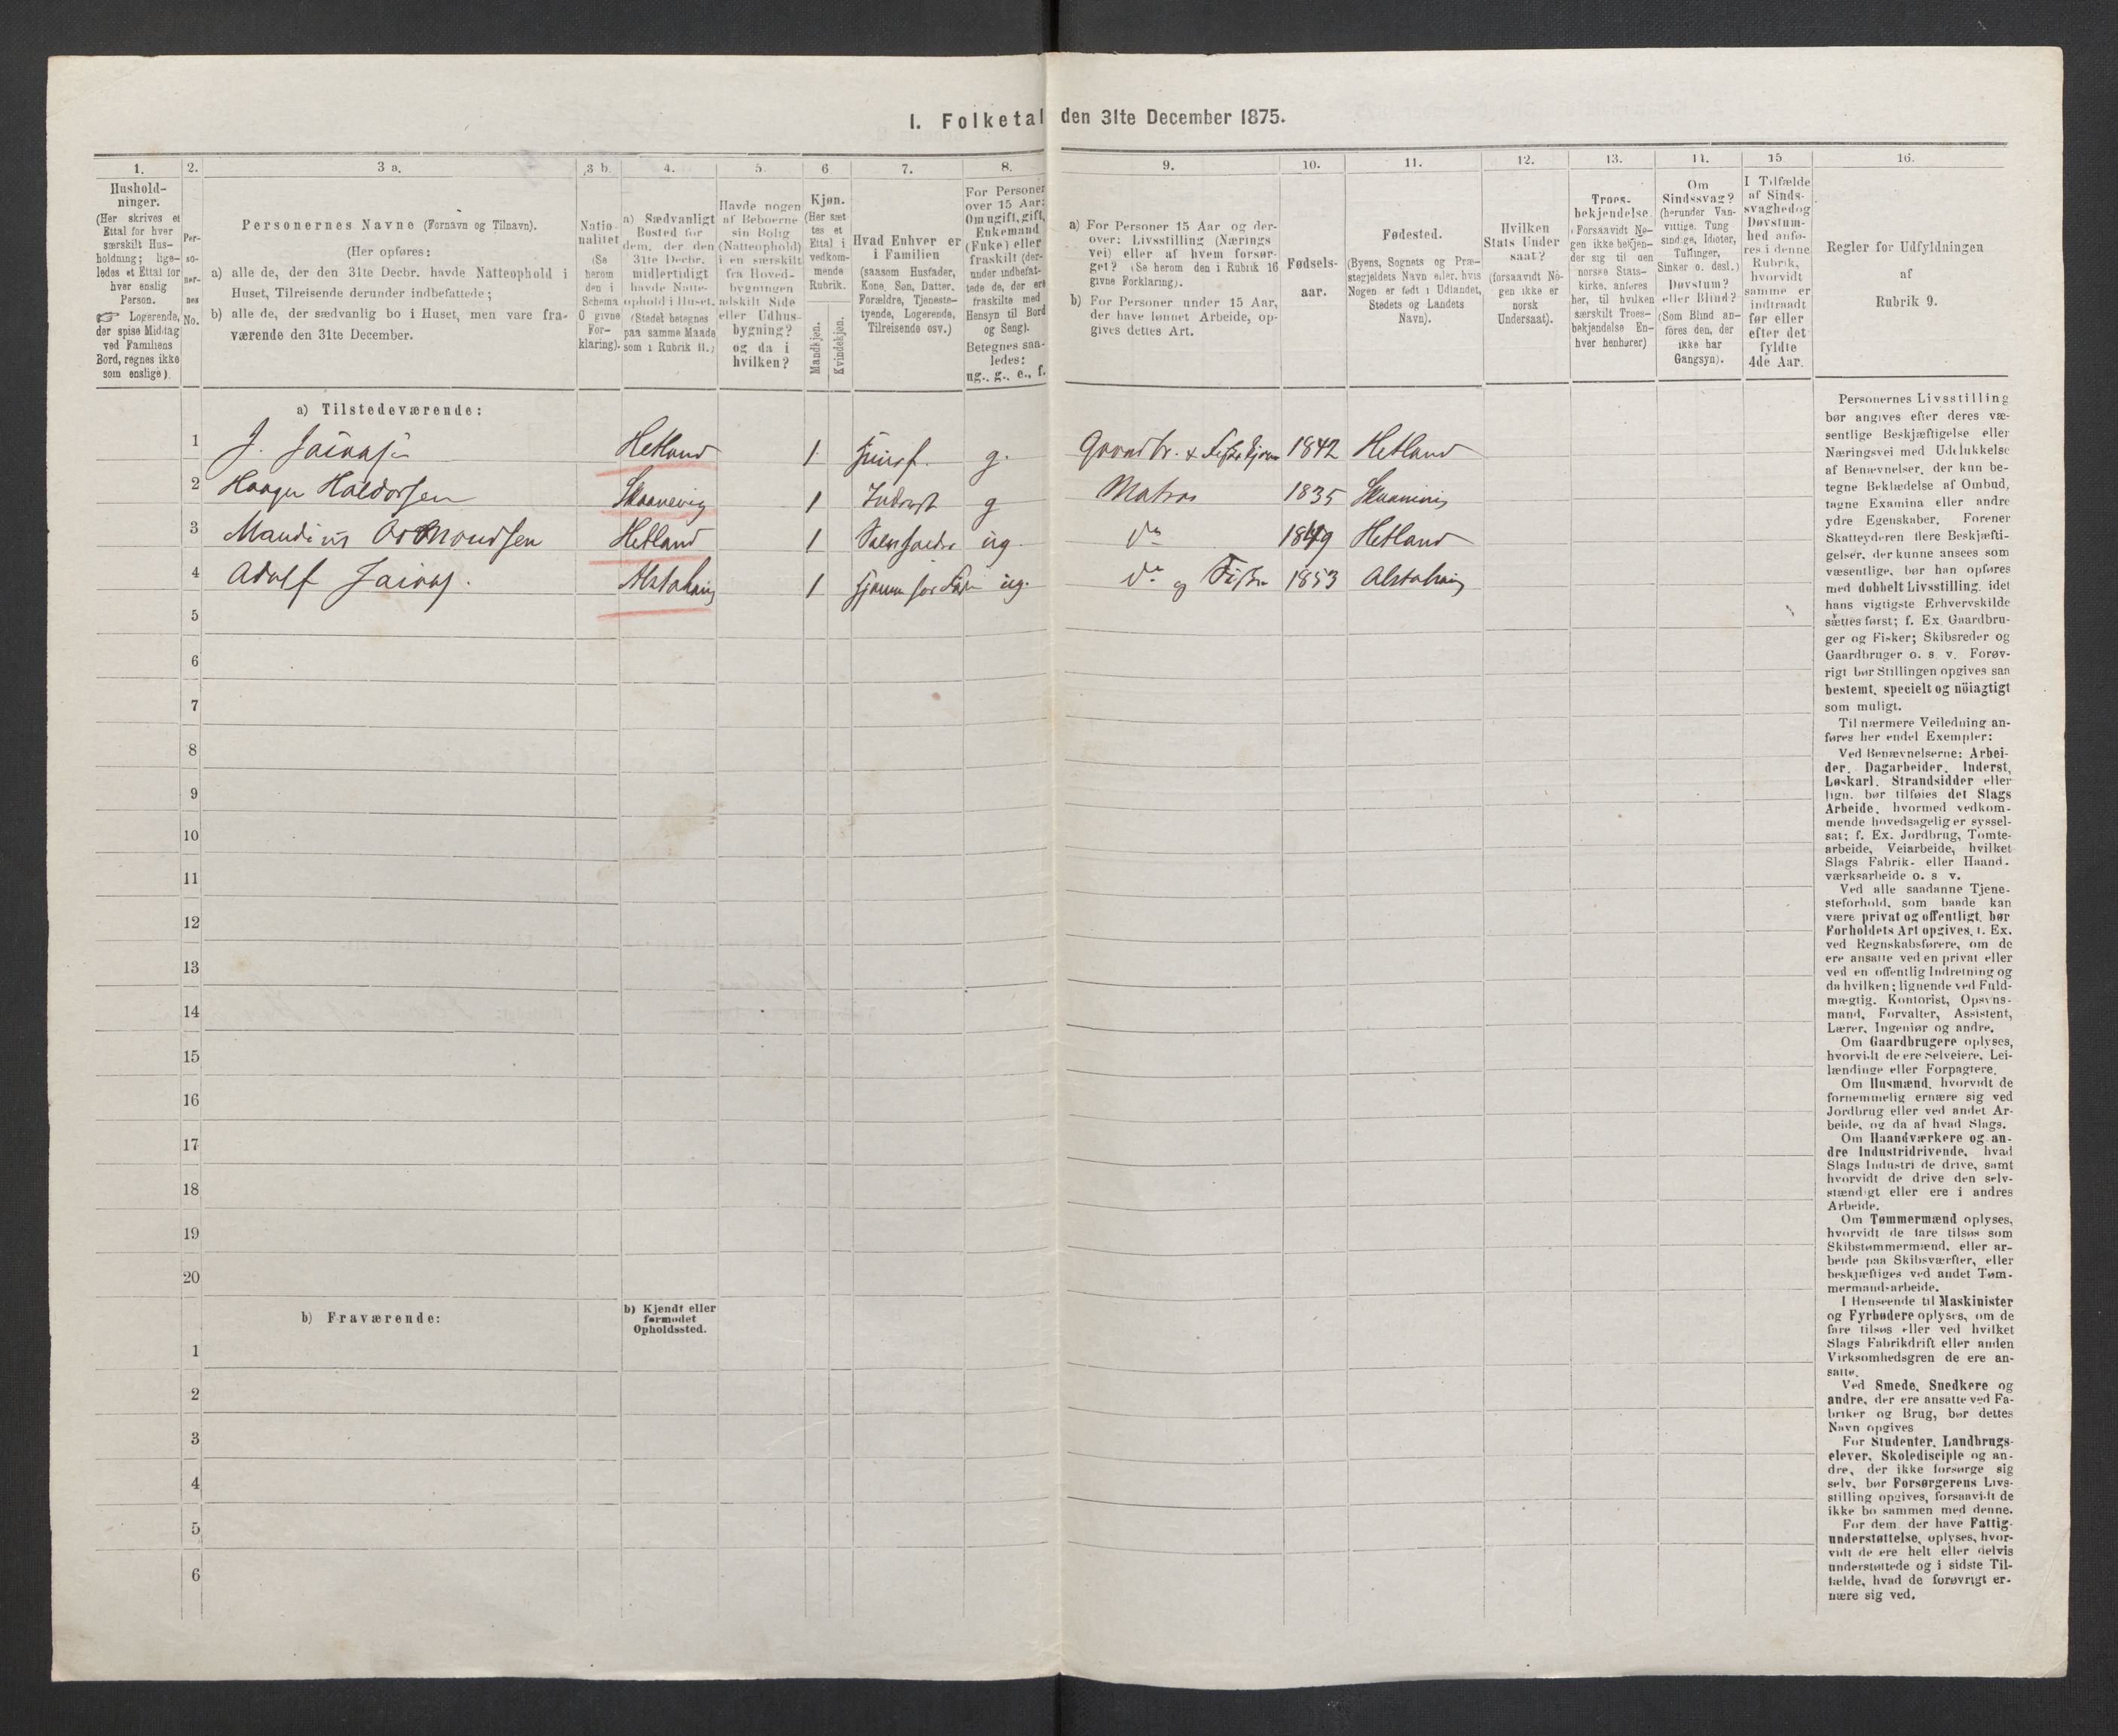 I. Folketal den 31te December 1875.
1.
Hushold-
ninger.
(Her skrives et
Ettal for hver
særskilt Hus-
holdning; lige-
ledes et Ettal for
hver enslig
Person.
☞ Logerende,
der spise Middag
ved Familiens
Bord, regnes ikke
som enslige).
2.
Per-
so-
ner-
nes
No.
3 a.
Personernes Navne (Fornavn og Tilnavn).
(Her opføres:
a) alle de, der den 31te Decbr. havde Natteophold i
Huset, Tilreisende derunder indbefattede;
b) alle de, der sædvanlig bo i Huset, men vare fra-
værende den 31te December.
3 b.
Natio-
nalitet
(Se
herom
den i
Schema
O givne
For-
klaring).
4.
a) Sædvanligt
Bosted for
dem, der den
31te Decbr.
midlertidigt
havde Natte-
ophold i Huset.
(Stedet betegnes
paa samme Maade
som i Rubrik 11.)
5.
Havde nogen
af Beboerne
sin Bolig
(Natteophold)
i en særskilt
fra Hoved-
bygningen
adskilt Side
eller Udhus-
bygning?
og da i
hvilken?
6
Kjøn.
(Her sæt
tes et
Ettal i
vedkom-
mende
Rubrik.
Mandkjøn.
Kvindekjøn.
7.
Hvad Enhver er
i Familien
(saasom Husfader,
Kone, Søn, Datter,
Forældre, Tjeneste-
tyende, Logerende,
Tilreisende osv.)
8.
For Personer
over 15 Aar:
Om ugift, gift,
Enkemand
(Enke) eller
fraskilt (der-
under indbefat-
tede de, der ere
fraskilte med
Hensyn til Bord
og Seng).
Betegnes saa-
ledes:
ug., g., e., f.
9.
a) For Personer 15 Aar og der-
over: Livsstilling (Nærings
vei) eller af hvem forsør-
get? (Se herom den i Rubrik 16
givne Forklaring).
b) For Personer under 15 Aar,
der have lønnet Arbeide, op-
gives dettes Art.
10.
Fødsels-
aar.
11.
Fødested.
(Byens, Sognets og Præ-
stegjeldets Navn eller, hvis
Nogen er født i Udlandet,
Stedets og Landets
Navn).
12.
Hvilken
Stats Under
saat?
(forsaavidt No-
gen ikke er
norsk
Undersaat).
13.
Troes-
bekjendelse.
(Forsaavidt No-
gen ikke bekjen-
der sig til den
norske Stats-
kirke, anføres
her, til hvilken
særskilt Troes-
bekjendelse En-
hver henhører)
14.
Om
Sindssvag?
(herunder Van-
vittige, Tung
sindige, Idioter,
Tullinger,
Sinker o. desl.)
Døvstum?
eller Blind?
(Som Blind an-
føres den, der
ikke har
Gangsyn).
15
I Tilfælde
af Sinds-
svaghed og
Døvstum-
hed anfø-
res i denne
Rubrik,
hvorvidt
samme er
indtraadt
før eller
efter det
fyldte
4de Aar.
16.
Regler for Udfyldningen
af
Rubrik 9.
a) Tilstedeværende:
1 J. Hetland 1 g. 1842 Hetland
2 Haagen Haldorsen Skaanevig 1 Inderst g Matros 1835 Skaanevig
3 Hetland 1 ug. do 1849 Hetland
4 Adolf Alstahaug 1 ug. do og Fisker 1853 Alstahaug
5
6
7
8
9
10
11
12
13
14
15
16
17
18
19
20
b) Fraværende:
b) Kjendt eller
formodet
Opholdssted.
1
2
3
4
5
6
Personernes Livsstilling
bør angives efter deres væ-
sentlige Beskjæftigelse eller
Næringsvei med Udelukkelse
af Benævnelser, der kun be-
tegne Beklædelse af Ombud,
tagne Examina eller andre
ydre Egenskaber. Forener
Skatteyderen flere Beskjæfti-
gelser, der kunne ansees som
væsentlige, bør han opføres
med dobbelt Livsstilling, idet
hans vigtigste Erhvervskilde
sættes først; f. Ex. Gaardbru-
ger og Fisker; Skibsreder og
Gaardbruger o. s. v. Forøv-
rigt bør Stillingen opgives saa
bestemt, specielt og nöiagtigt
som muligt.
Til nærmere Veiledning an-
føres her endel Exempler:
Ved Benævnelserne: Arbei-
der, Dagarbeider, Inderst,
Løskarl, Strandsidder eller
lign. bør tilføies det Slags
Arbeide, hvormed vedkom-
mende hovedsagelig er syssel-
sat; f. Ex. Jordbrug, Tomte-
arbeide, Veiarbeide, hvilket
Slags Fabrik- eller Haand-
værksarbeide o. s v.
Ved alle saadanne Tjene-
steforhold, som baade kan
være privat og offentligt, bør
Forholdets Art opgives, f. Ex.
ved Regnskabsførere, om de
ere ansatte ved en privat eller
ved en offentlig Indretning og
da hvilken; lignende ved Fuld-
mægtig, Kontorist, Opsyns-
mand, Forvalter, Assistent,
Lærer, Ingeniør og andre.
Om Gaardbrugere oplyses,
hvorvidt de ere Selveiere, Lei-
lændinge eller Forpagtere.
Om Husmænd, hvorvidt de
fornemmelig ernære sig ved
Jordbrug eller ved andet Ar-
beide, og da af hvad Slags.
Om Haandværkere og an-
dre Industridrivende, hvad
Slags Industri de drive, samt
hvorvidt de drive den selv-
stændigt eller ere i andres
Arbeide.
Om Tømmermænd oplyses,
hvorvidt de fare tilsøs som
Skibstømmermænd, eller ar-
beide paa Skibsværfter, eller
beskjæftiges ved andet Tøm-
mermandsarbeide.
I Henseende til Maskinister
og Fyrbødere oplyses, om de
fare tilsøs eller ved hvilket
Slags Fabrikdrift eller anden
Virksomhedsgren de ere an-
satte.
Ved Smede, Snedkere og
andre, der ere ansatte ved Fa-
briker og Brug, bør dettes
Navn opgives
For Studenter, Landbrugs-
elever, Skoledisciple og an-
dre, der ikke forsørge sig
selv, bør Forsørgerens Livs-
stilling opgives, forsaavidt de
ikke bo sammen med denne.
For dem, der have Fattig-
understøttelse, oplyses, hvor-
vidt de ere helt eller delvis
understøttede og i sidste Til-
fælde, hvad de forøvrigt er-
nære sig ved.